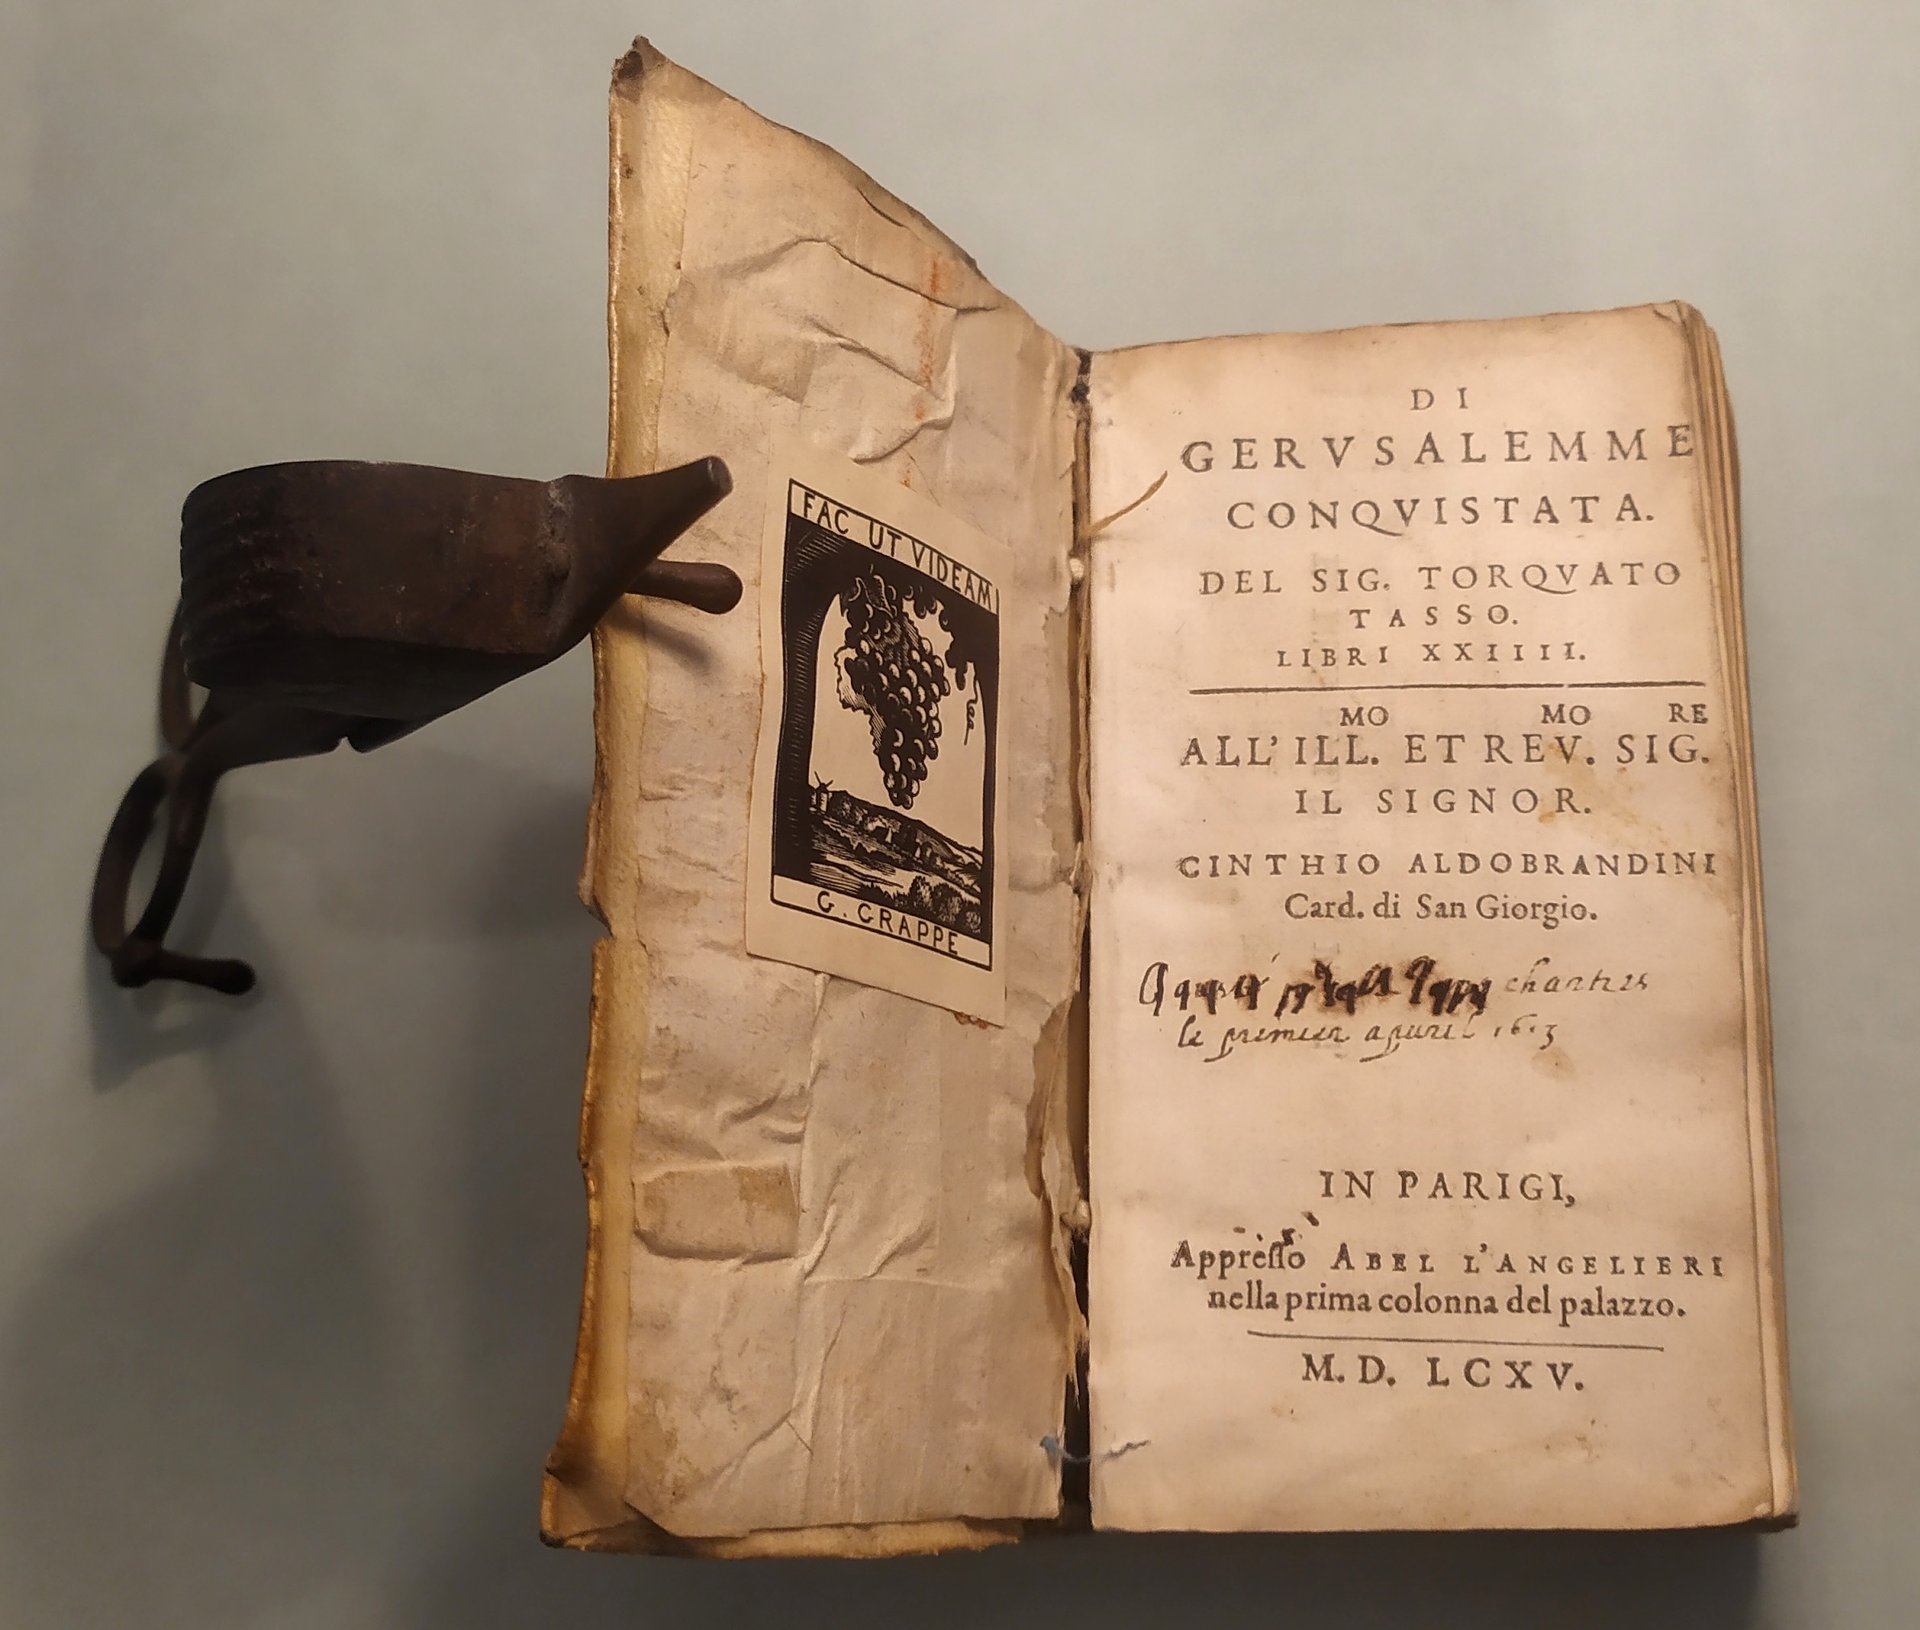 FAC UT VIDEAM
G. GRAPPE
DI
GERVSALEMME
CONQVISTATA.
DEL SIG. TORQVATO
TASSO.
LIBRI XXIIII.
MO MO RE
ALL' ILL. ET REV. SIG.
IL SIGNOR.
CINTHIO ALDOBRANDINI
Card. di San Giorgio.
chartres
le premier apuril 1613
IN PARIGI,
Appresso ABEL L'ANGELIERI
nella prima colonna del palazzo.
M. D. LCXV.